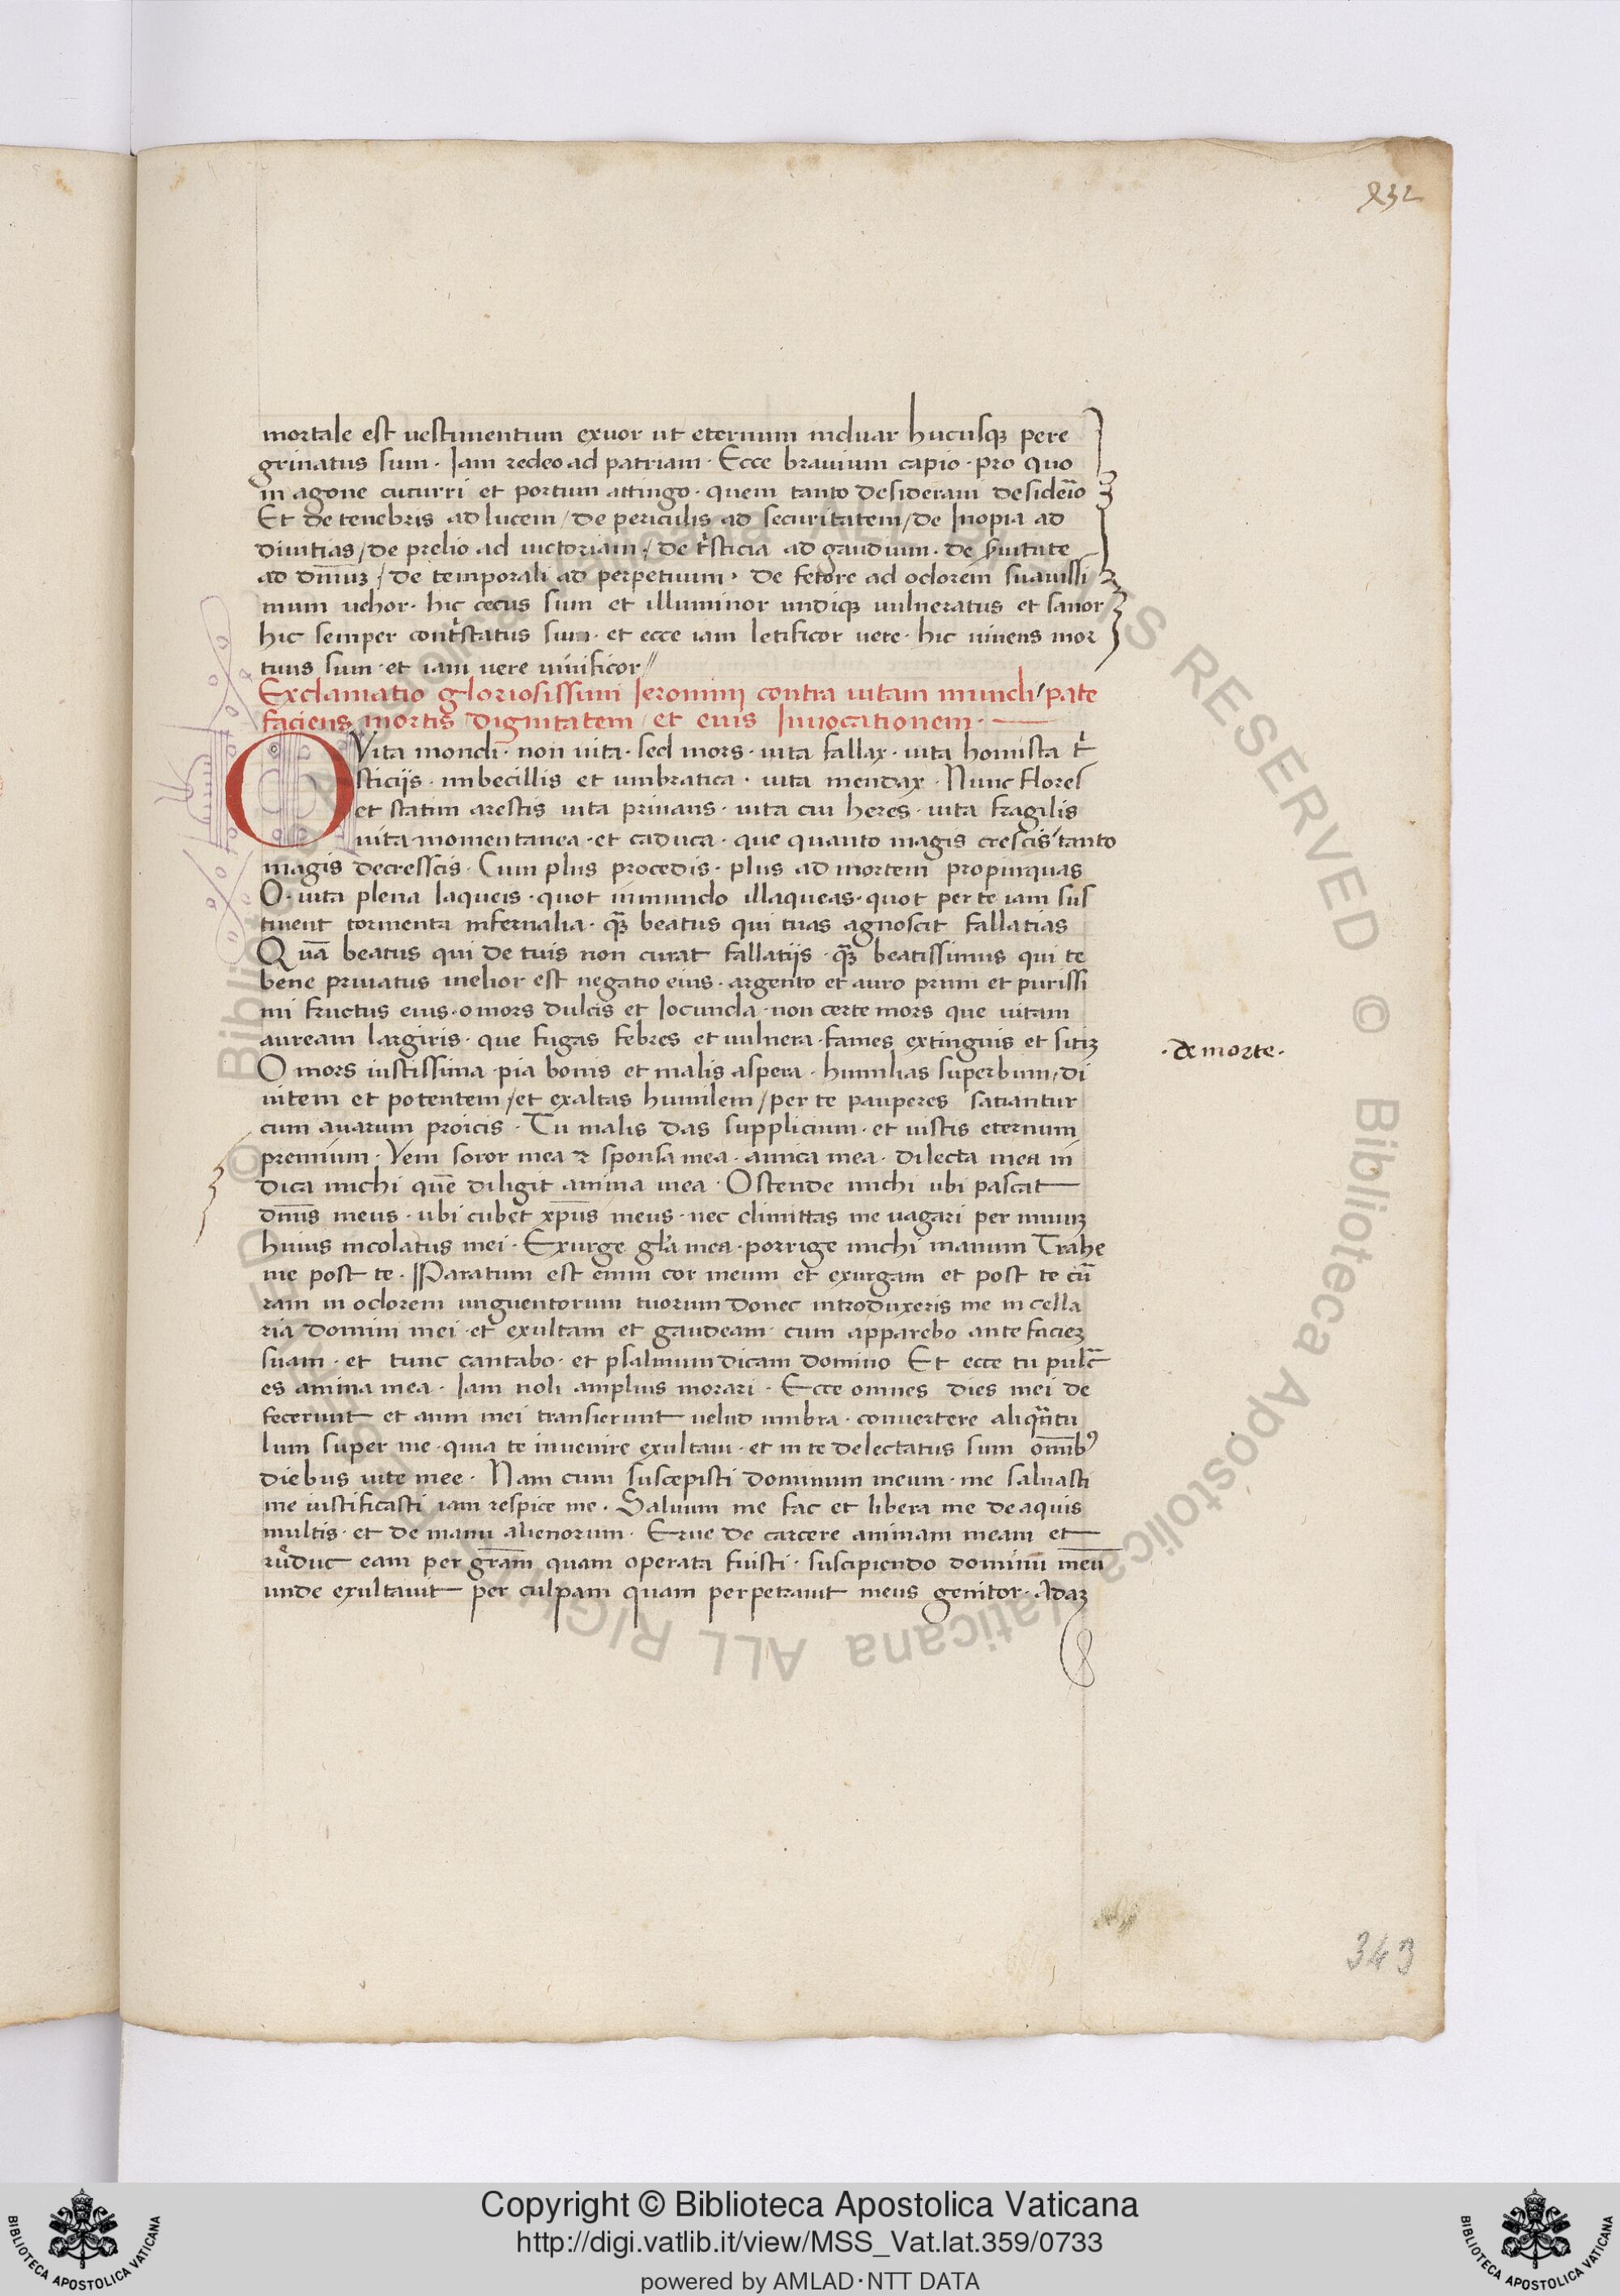 232
mortale est vestimentum exuor ut eternum induar hucusqꝫ pere
grinatus sum · Iam redeo ad patriam · Ecce brauium capio · pro quo
in agone cucurri et portum attingo · quem tanto desideraui desideı̄o
Et de tenebris ad lucem / de periculis ad securitatem / de Inopia ad
diuitias / de prelio ad uictoriam / de tͥsticia ad gaudium · de
ad dm̄uꝫ / de temporali ad perpetuum · de fetore ad odorem suauissi
mum uehor · hic cecus sum et illuminor undiqꝫ uulneratus et sanor
hic semper contͥstatus sum · et ecce iam letificor uere · hic uiuens mor
tuus sum · et iam uere uiuificor //
Exclamatio gloriosissimi Ieronimi contra uitam mundi / pate
faciens mortis dignitatem / et eius Inuocationem ·
O Vita mondi · non uita · sed mors · uita fallax · uita honusta tͥ
sticijs · imbecillis et umbratica · uita mendax · Nunc flores
et statim arescis uita priuans · uita cui heres · uita fragilis
uita momentanea · et caduca · que quanto magis crescis / tanto
magis decresscis · Cum plus procedis · plus ad mortem propinquas
O · uita plena laqueis · quot in mundo illaqueas · quot per te iam sus
tinent tormenta infernalia · qꝫ̄ beatus qui tuas agnoscit fallatias
Quā beatus qui de tuis non curat fallatijs · qꝫ̄ beatissimus qui te
bene priuatus melior est negatio eius · argento et auro primi et purissi
mi fructus eius · o mors dulcis et Iocunda · non certe mors que uitam
auream largiris · que fugas febres et uulnera · fames extinguis et sitiꝫ
· de morte ·
O mors iustissima · pia bonis et malis aspera · humilias superbum / di
uitem et potentem / et exaltas humilem / per te pauperes satiantur
cum auarum proicis · Tu malis das supplicium · et iustis eternum
premium · Veni soror mea ⁊ sponsa mea · amica mea · dilecta mea in
dica michi quē diligit anima mea · Ostende michi ubi pascat
dn̄us meus · ubi cubet xp̄us meus · nec dimittas me uagari per
huius incolatus mei · Exurge gl̄a mea · porrige michi manum Trahe
me post te · Paratum est enim cor meum et exurgam et post te cur̄
ram in odorem unguentorum tuorum donec introduxeris me in cella
ria domini mei · et exultam et gaudeam · cum apparebo ante facieꝫ
suam · et tunc cantabo · et psalmum dicam domino Et ecce tu pulc̄
es amina mea · Iam noli amplius morari · Ecce omnes dies mei de
fecerunt et anni mei transierunt uelud umbra · conuertere aliqͣntu
lum super me · quia te inuenire exultaui · et in te delectatus sum om̄ibꝰ
diebus uite mee · Nam cum suscepisti dominum meum · me saluasti
me iustificasti iam respice me · Saluum me fac et libera me de aquis
multis · et de manu alienorum · Erue de carcere animam meam et
eam per gr̄am quam operata fuisti · suscipiendo dominū meū
unde exultauit per culpam quam perpetrauit meus genitor · Adaꝫ
343
© Biblioteca Apostolica Vaticana ALL RIGHTS RESERVED © Biblioteca Apostolica Vaticana ALL RIGHTS RESERVED
Copyright © Biblioteca Apostolica Vaticana
http://digi.vatlib.it/view/MSS_Vat.lat.359/0733
powered by AMLAD·NTT DATA
BIBLIOTECA APOSTOLICA VATICANA
BIBLIOTECA APOSTOLICA VATICANA